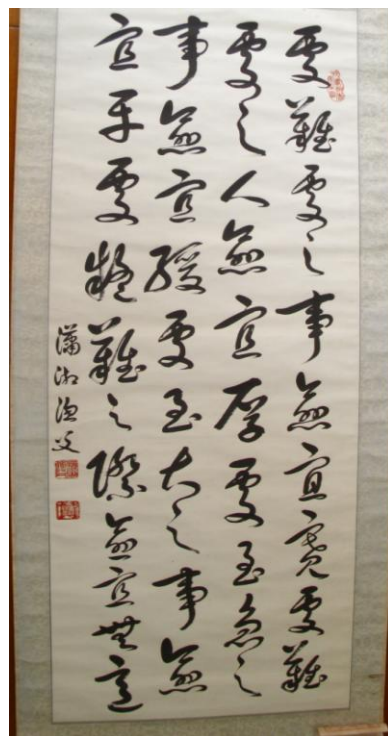 處難處之事愈宜寬處難
處之人愈宜厚處至急之
事愈宜緩處至大之事愈
宜平處疑難之際愈宜無意
瀟湘漁父